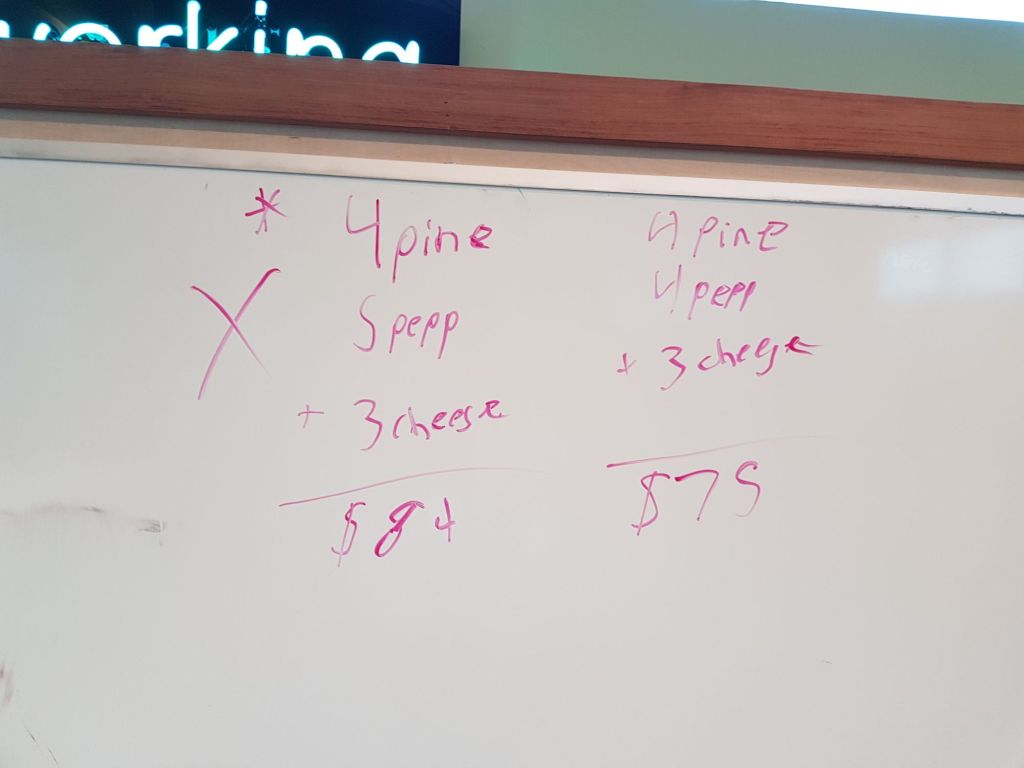 working
* 4 pine
X 5 pepp
+ 3 cheese
$84
4 pine
4 pepp
+ 3 cheese
$75